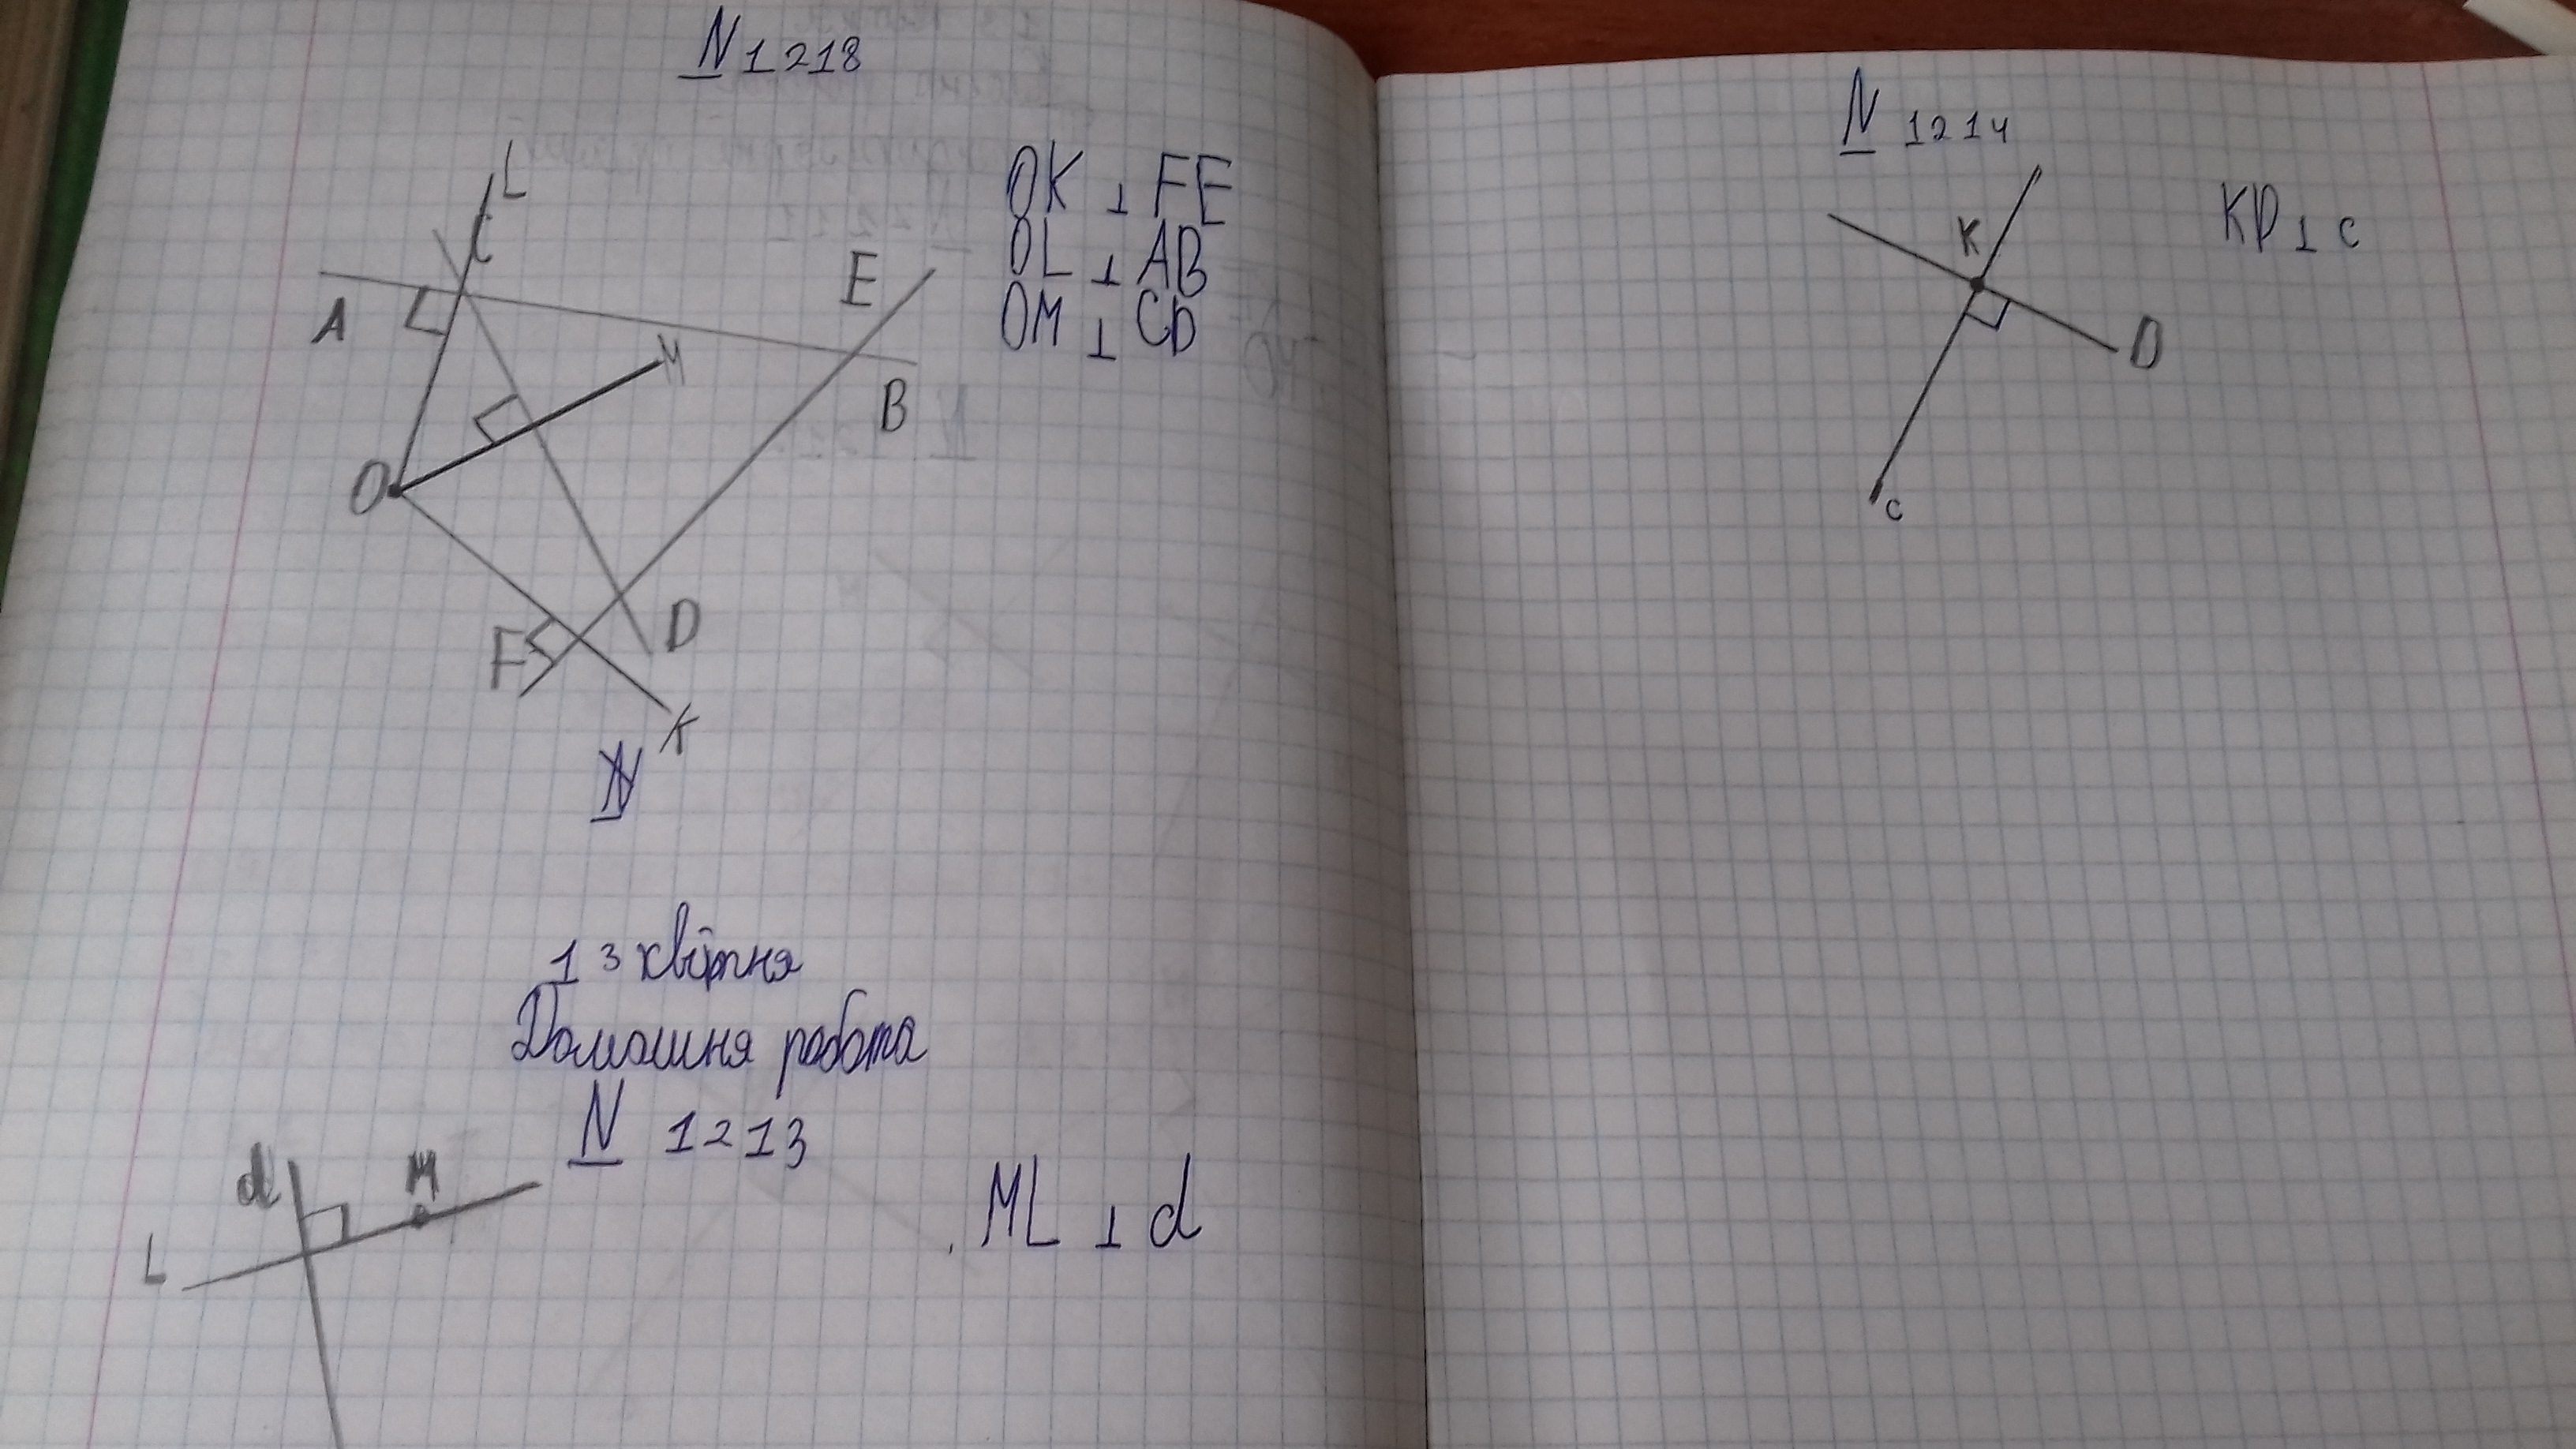 N 1218
L
C
E
A
M
B
O
F
D
K
OK ⊥ FE
OL ⊥ AB
OM ⊥ CD
N
13 квітня
Домашня робота
N 1213
d
M
L
ML ⊥ d
N 1214
K
D
c
KD ⊥ c